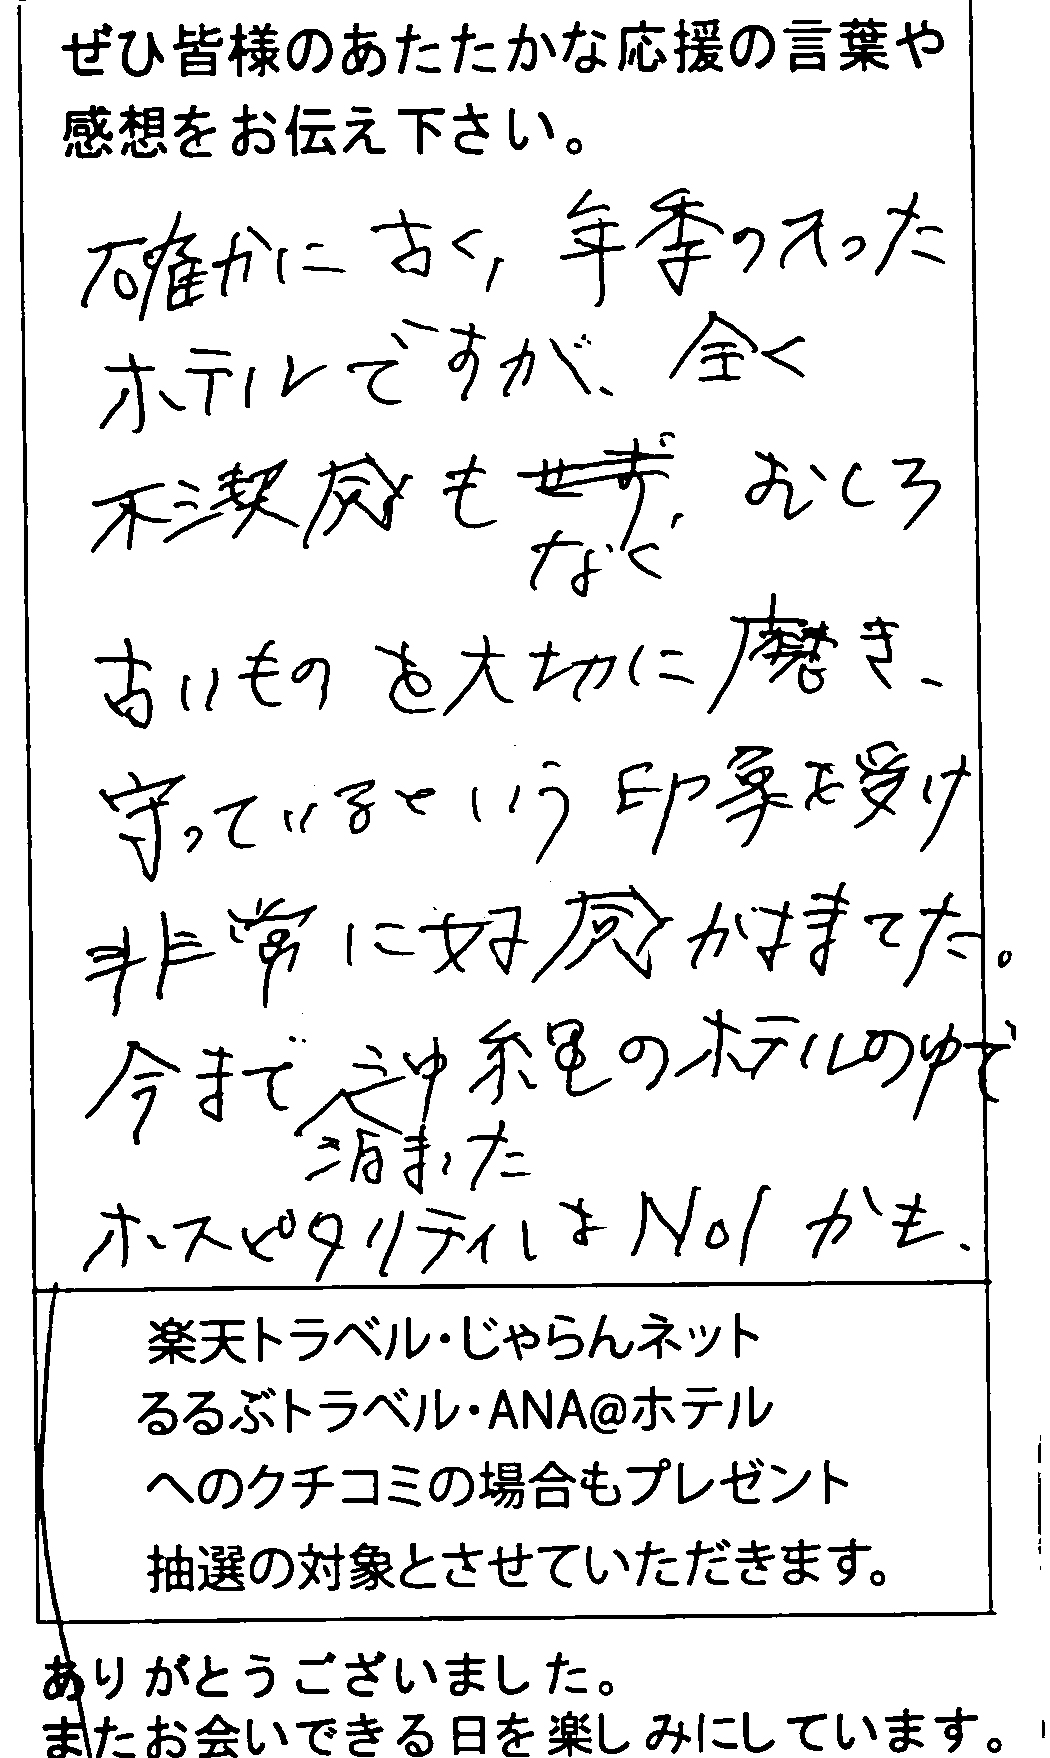 ぜひ皆様のあたたかな応援の言葉や
感想をお伝え下さい。
確かに古く, 年季の入った
ホテルですが、全く
不潔感もせず, むしろ
なく
古いものを大切に磨き、
守っているという印象を受け
非常に好感がもてました。
今まで沖縄のホテルの中で
泊まった
ホスピタリティはNo1かも、
楽天トラベル・じゃらんネット
るるぶトラベル・ANA@ホテル
へのクチコミの場合もプレゼント
抽選の対象とさせていただきます。
ありがとうございました。
またお会いできる日を楽しみにしています。